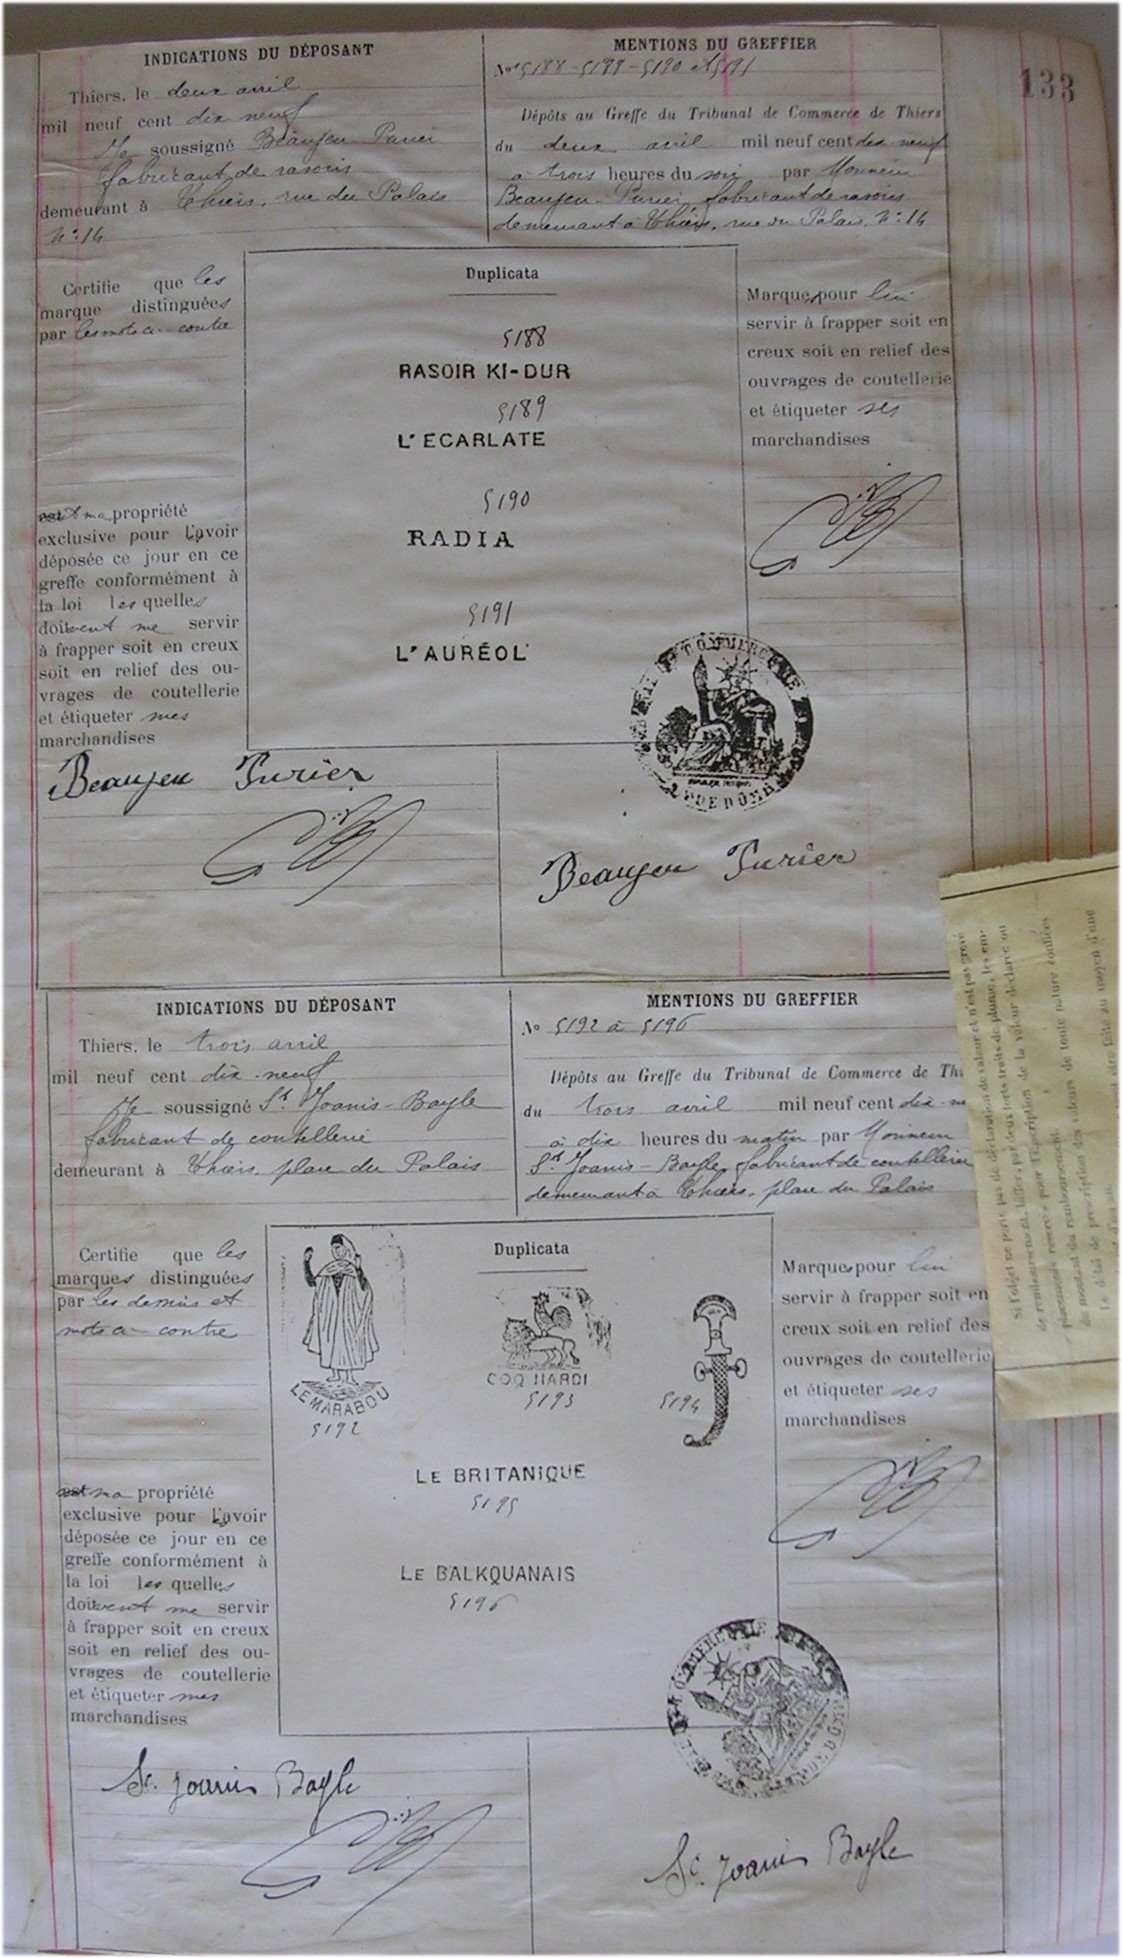 133
INDICATIONS DU DÉPOSANT
Thiers, le deux avril
mil neuf cent dix neuf
Je soussigné Beaujeu Purier
fabricant de rasoirs
demeurant à Thiers, rue du Palais
N° 14
MENTIONS DU GREFFIER
Nos 5188 - 5189 - 5190 et 5191
Dépôts au Greffe du Tribunal de Commerce de Thiers
du deux avril mil neuf cent dix neuf
à trois heures du soir par Monsieur
Beaujeu-Purier, fabricant de rasoirs
demeurant à Thiers, rue du Palais, N° 14
Certifie que les
marque distinguées
par les mots ci-contre
est et ma propriété
exclusive pour l'avoir
déposée ce jour en ce
greffe conformément à
la loi lesquelles
doivent me servir
à frapper soit en creux
soit en relief des ou-
vrages de coutellerie
et étiqueter mes
marchandises
Duplicata
5188
RASOIR KI-DUR
5189
L'ECARLATE
5190
RADIA
5191
L'AURÉOL
Marques pour lui
servir à frapper soit en
creux soit en relief des
ouvrages de coutellerie
et étiqueter ses
marchandises
Beaujeu Purier
Beaujeu Purier
INDICATIONS DU DÉPOSANT
Thiers, le trois avril
mil neuf cent dix-neuf
Je soussigné St Joanis-Bayle
fabricant de coutellerie
demeurant à Thiers, place du Palais
MENTIONS DU GREFFIER
No 5192 à 5196
Dépôts au Greffe du Tribunal de Commerce de Thi
du trois avril mil neuf cent dix-ne
à dix heures du matin par Monsieur
St Joanis-Bayle, fabricant de coutellerie
demeurant à Thiers, place du Palais
Certifie que les
marques distinguées
par les dessins et
mots ci-contre
est ma propriété
exclusive pour l'avoir
déposée ce jour en ce
greffe conformément à
la loi lesquelles
doivent me servir
à frapper soit en creux
soit en relief des ou-
vrages de coutellerie
et étiqueter mes
marchandises
Duplicata
LE MARABOU
5192
COQ HARDI
5193
5194
LE BRITANIQUE
5195
LE BALKQUANAIS
5196
Marques pour lui
servir à frapper soit en
creux soit en relief des
ouvrages de coutellerie
et étiqueter ses
marchandises
St. Joanis Bayle
St. Joanis Bayle